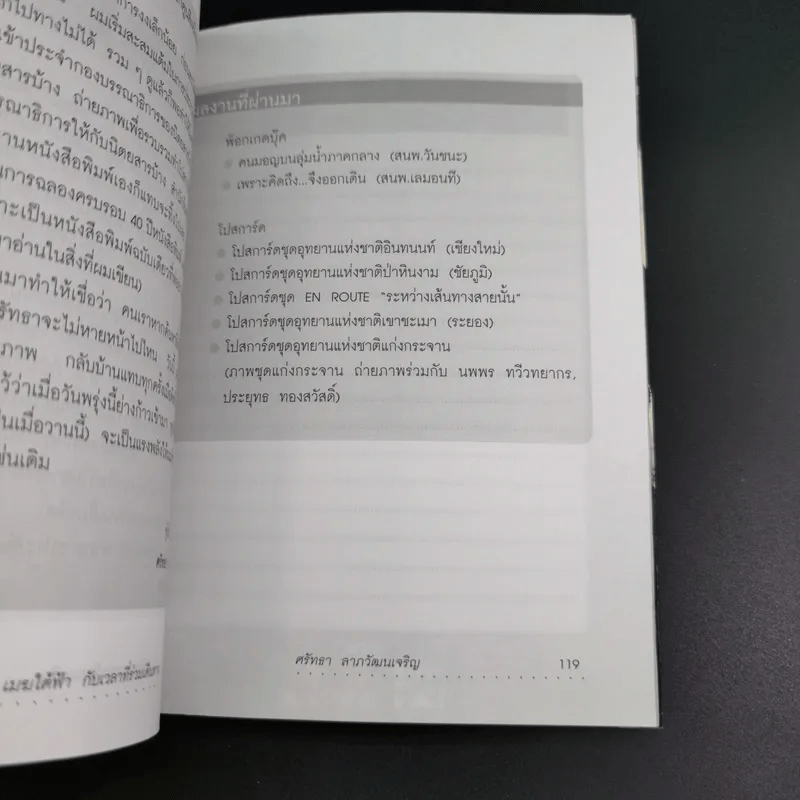 การงงเล็กน้อย
ผมเริ่มสะสมแต้มในการ
ไปทางไม่ได้ รวม ๆ ดูแล้วก็
เข้าประจำกองบรรณาธิการของ
สารบ้าง ถ่ายภาพเพื่อรวบรวม
รณาธิการให้กับนิตยสารบ้าง
านหนังสือพิมพ์เองก็แทบจะ
นการฉลองครบรอบ 40 ปีหนังสือ
าะเป็นหนังสือพิมพ์ฉบับเดียวที่
าอ่านในสิ่งที่ผมเขียน)
มาทำให้เชื่อว่า คนเราหาก
รัทธาจะไม่หายหน้าไปไหน วันนี้
ภาพ กลับบ้านแทบทุกครั้ง
ว้ว่าเมื่อวันพรุ่งนี้ย่างก้าวเข้ามา
ป็นเมื่อวานนี้) จะเป็นแรงพลัง
ช่นเดิม
เมฆใต้ฟ้า กับเวลาที่ร่วมเดินทาง
ลงานที่ผ่านมา
พ็อกเกตบุ๊ค
คนมอญบนลุ่มน้ำภาคกลาง (สนพ.วันชนะ)
เพราะคิดถึง...จึงออกเดิน (สนพ.เลมอนที)
โปสการ์ด
โปสการ์ดชุดอุทยานแห่งชาติอินทนนท์ (เชียงใหม่)
โปสการ์ดชุดอุทยานแห่งชาติป่าหินงาม (ชัยภูมิ)
โปสการ์ดชุด EN ROUTE "ระหว่างเส้นทางสายนั้น"
โปสการ์ดชุดอุทยานแห่งชาติเขาชะเมา (ระยอง)
โปสการ์ดชุดอุทยานแห่งชาติแก่งกระจาน
(ภาพชุดแก่งกระจาน ถ่ายภาพร่วมกับ นพพร ทวีวทยากร,
ประยุทธ ทองสวัสดิ์)
ศรัทธา ลาภวัฒนเจริญ 119